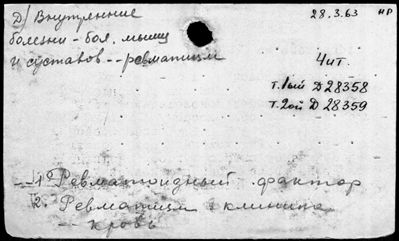 Д/ Внутренние
28.3.63 нр
болезни - бол. мышц
и суставов -- ревматизм
4ит.
т. 1ый Д 28358
т. 2ой Д 28359
1. Ревматоидный фактор
2. Ревматизм - клиника
-- кровь